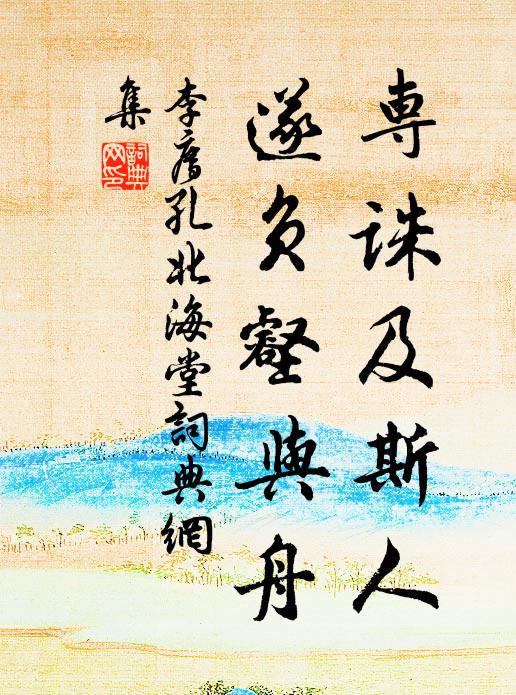 專誅及斯人
遂負壑與舟
李廌孔北海堂詞典網
集
詞典
网印